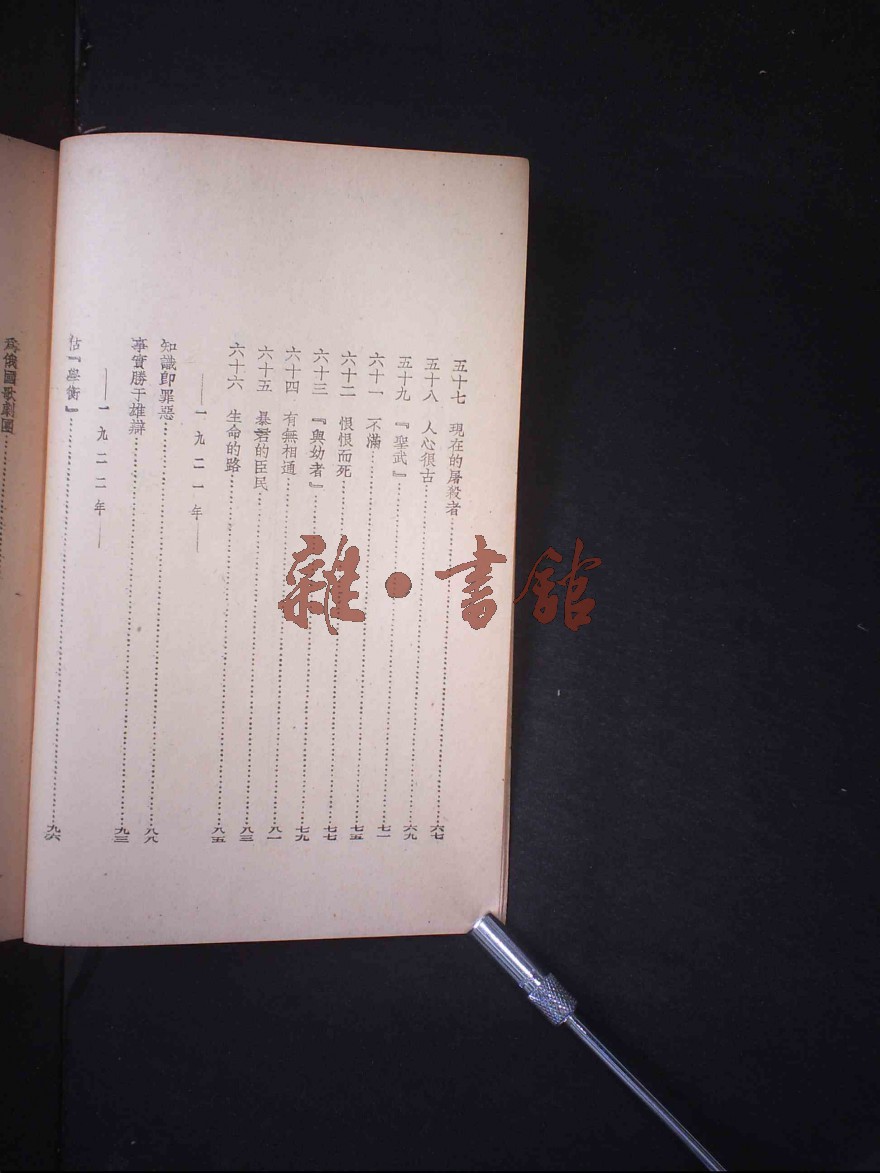 五十七　現在的屠殺者……六七
五十八　人心很古……六九
五十九　『聖武』……七一
六十一　不滿……七五
六十二　恨恨而死……七七
六十三　『與幼者』……七九
六十四　有無相通……八一
六十五　暴君的臣民……八三
六十六　生命的路……八五
——一九二一年——
知識即罪惡……八八
事實勝于雄辯……九三
——一九二二年——
估『學衡』……九六
爲俄國歌劇團……
雜·書館